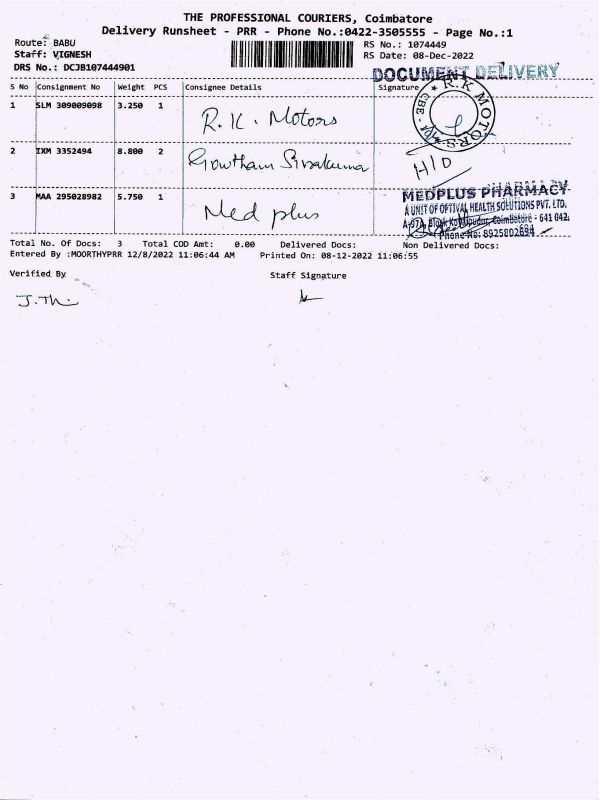 THE PROFESSIONAL COURIERS, Coimbatore
Delivery Runsheet - PRR - Phone No.:0422-3505555 - Page No.:1
Route: BABU
Staff: VIGNESH
DRS No.: DCJB107444901
RS No.: 1074449
RS Date: 08-Dec-2022
DOCUMENT DELIVERY
S No Consignment No Weight PCS Consignee Details Signature
1 SLM 309009098 3.250 1 R.K. Motors
R.K MOTORS CBE
2 IXM 3352494 8.800 2 Gowtham Sivakumar H/D
3 MAA 295028982 5.750 1 Med plus
MEDPLUS PHARMACY
A UNIT OF OPTIVAL HEALTH SOLUTIONS PVT. LTD.
Coimbatore - 641 042.
Phone No: 8925802694
Total No. Of Docs: 3 Total COD Amt: 0.00 Delivered Docs: Non Delivered Docs:
Entered By :MOORTHYPRR 12/8/2022 11:06:44 AM Printed On: 08-12-2022 11:06:55
Verified By Staff Signature